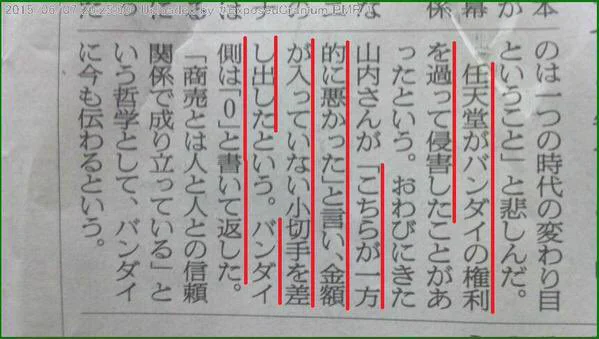 Uploaded by @ExposedCranium
本
が
係
な
のは一つの時代の変わり目
ということ」と悲しんだ。
任天堂がバンダイの権利
を過って侵害したことがあ
ったという。おわびにきた
山内さんが「こちらが一方
的に悪かった」と言い、金額
が入っていない小切手を差
し出したという。バンダイ
側は「0」と書いて返した。
「商売とは人と人との信頼
関係で成り立っている」と
いう哲学として、バンダイ
に今も伝わるという。